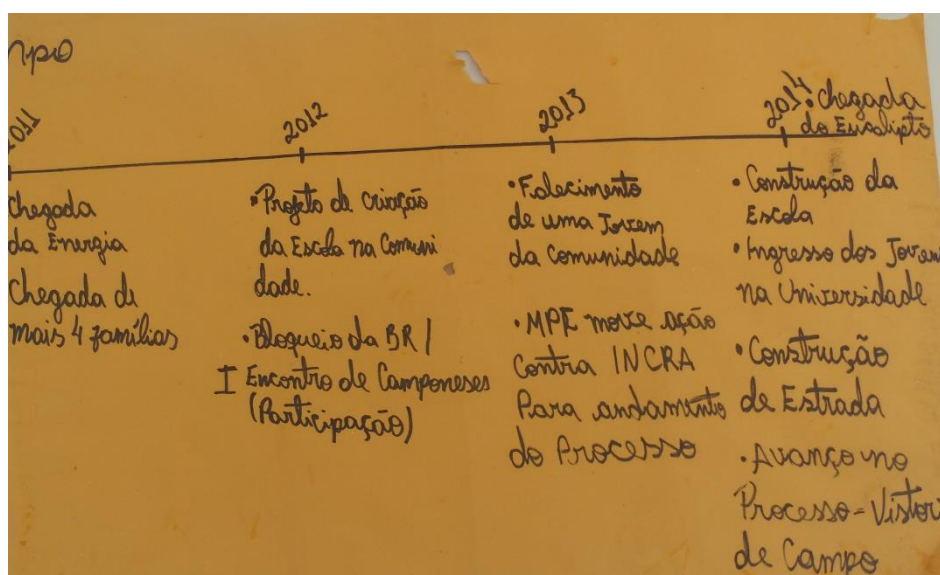 mpo
2011
2012
2013
2014
• chegada
do Eucalipto
Chegada
da Energia
Chegada de
mais 4 famílias
• Projeto de criação
da Escola na Comuni
dade.
• Bloqueio da BR /
I Encontro de Camponeses
(Participação)
• Falecimento
de uma Jovem
da Comunidade
• MPE move ação
Contra INCRA
Para andamento
do Processo
• Construção da
Escola
• Ingresso dos Joven
na Universidade
• Construção
de Estrada
• Avanço no
Processo - Vistori
de Campo